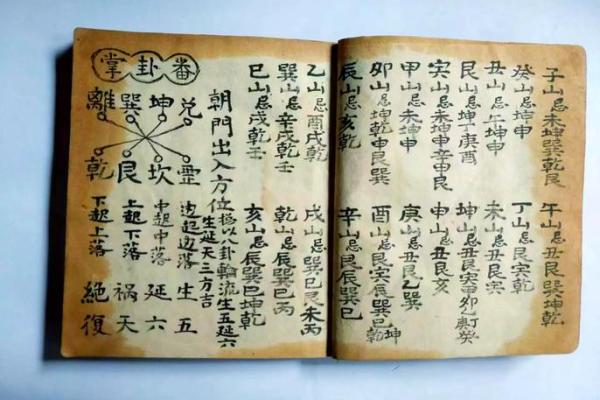 子山忌未坤巽乾艮 午山忌丑艮巽坤乾
癸山忌坤申 丁山忌艮寅乾
丑山忌午坤申 未山忌丑艮寅
艮山忌坤丁庚酉 坤山忌丑艮寅甲卯乙癸
寅山忌未坤申辛申艮 申山忌丑艮亥
甲山忌未坤申 庚山忌丑艮乙巽
卯山忌坤乾申艮巽 酉山忌艮寅辰巽巳乾坤
辰山忌亥乾 辛山忌艮辰巽巳
乙山忌酉戌乾 戌山忌巽巳艮未丙
巽山忌辛戌乾壬 乾山忌辰巽巳丙
巳山忌戌乾壬 亥山忌辰巽巳坤乾
朝門出入方位總以八卦輪流生五延六
生延天三方吉
番卦掌
兌 起 落 生五
坤 坎 中起中落 延六
巽 艮 上起下落 禍天
離 乾 下起上落 絕復